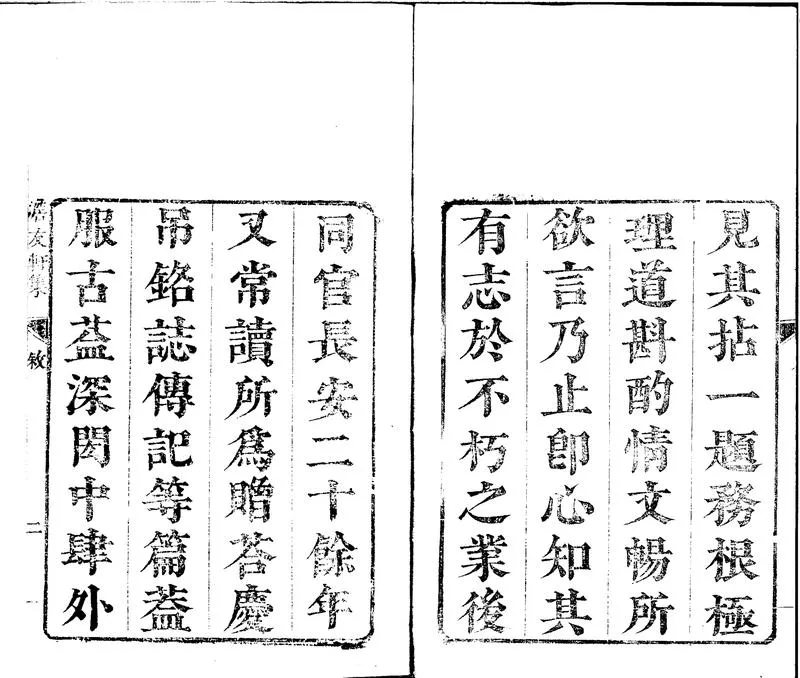 見其拈一題務根極
理道斟酌情文暢所
欲言乃止卽心知其
有志於不朽之業後
同官長安二十餘年
又常讀所爲贈荅慶
吊銘誌傳記等篇葢
服古葢深閎中肆外
友軒集
敘
二